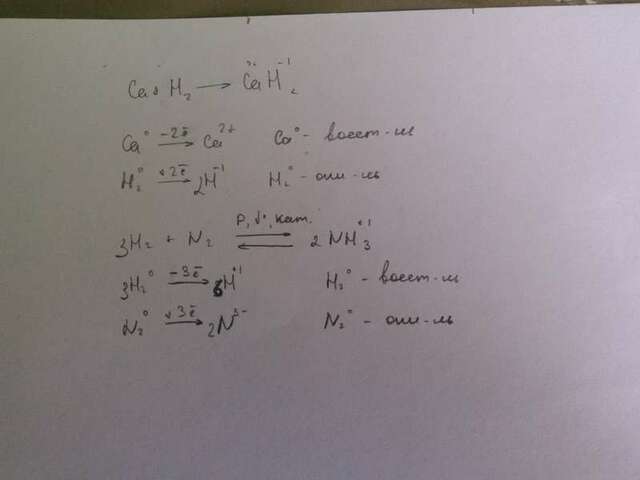 Ca + H₂ → Ca⁺²H⁻¹₂
Ca⁰ −2ē → Ca²⁺ Ca⁰ - восст-ль
H₂⁰ +2ē → 2H⁻¹ H₂⁰ - оки-ль
3H₂ + N₂ P, t°, кат. ⇌ 2NH₃⁺¹
3H₂⁰ −3ē → 6H⁺¹ H₂⁰ - восст-ль
N₂⁰ +3ē → 2N³⁻ N₂⁰ - оки-ль